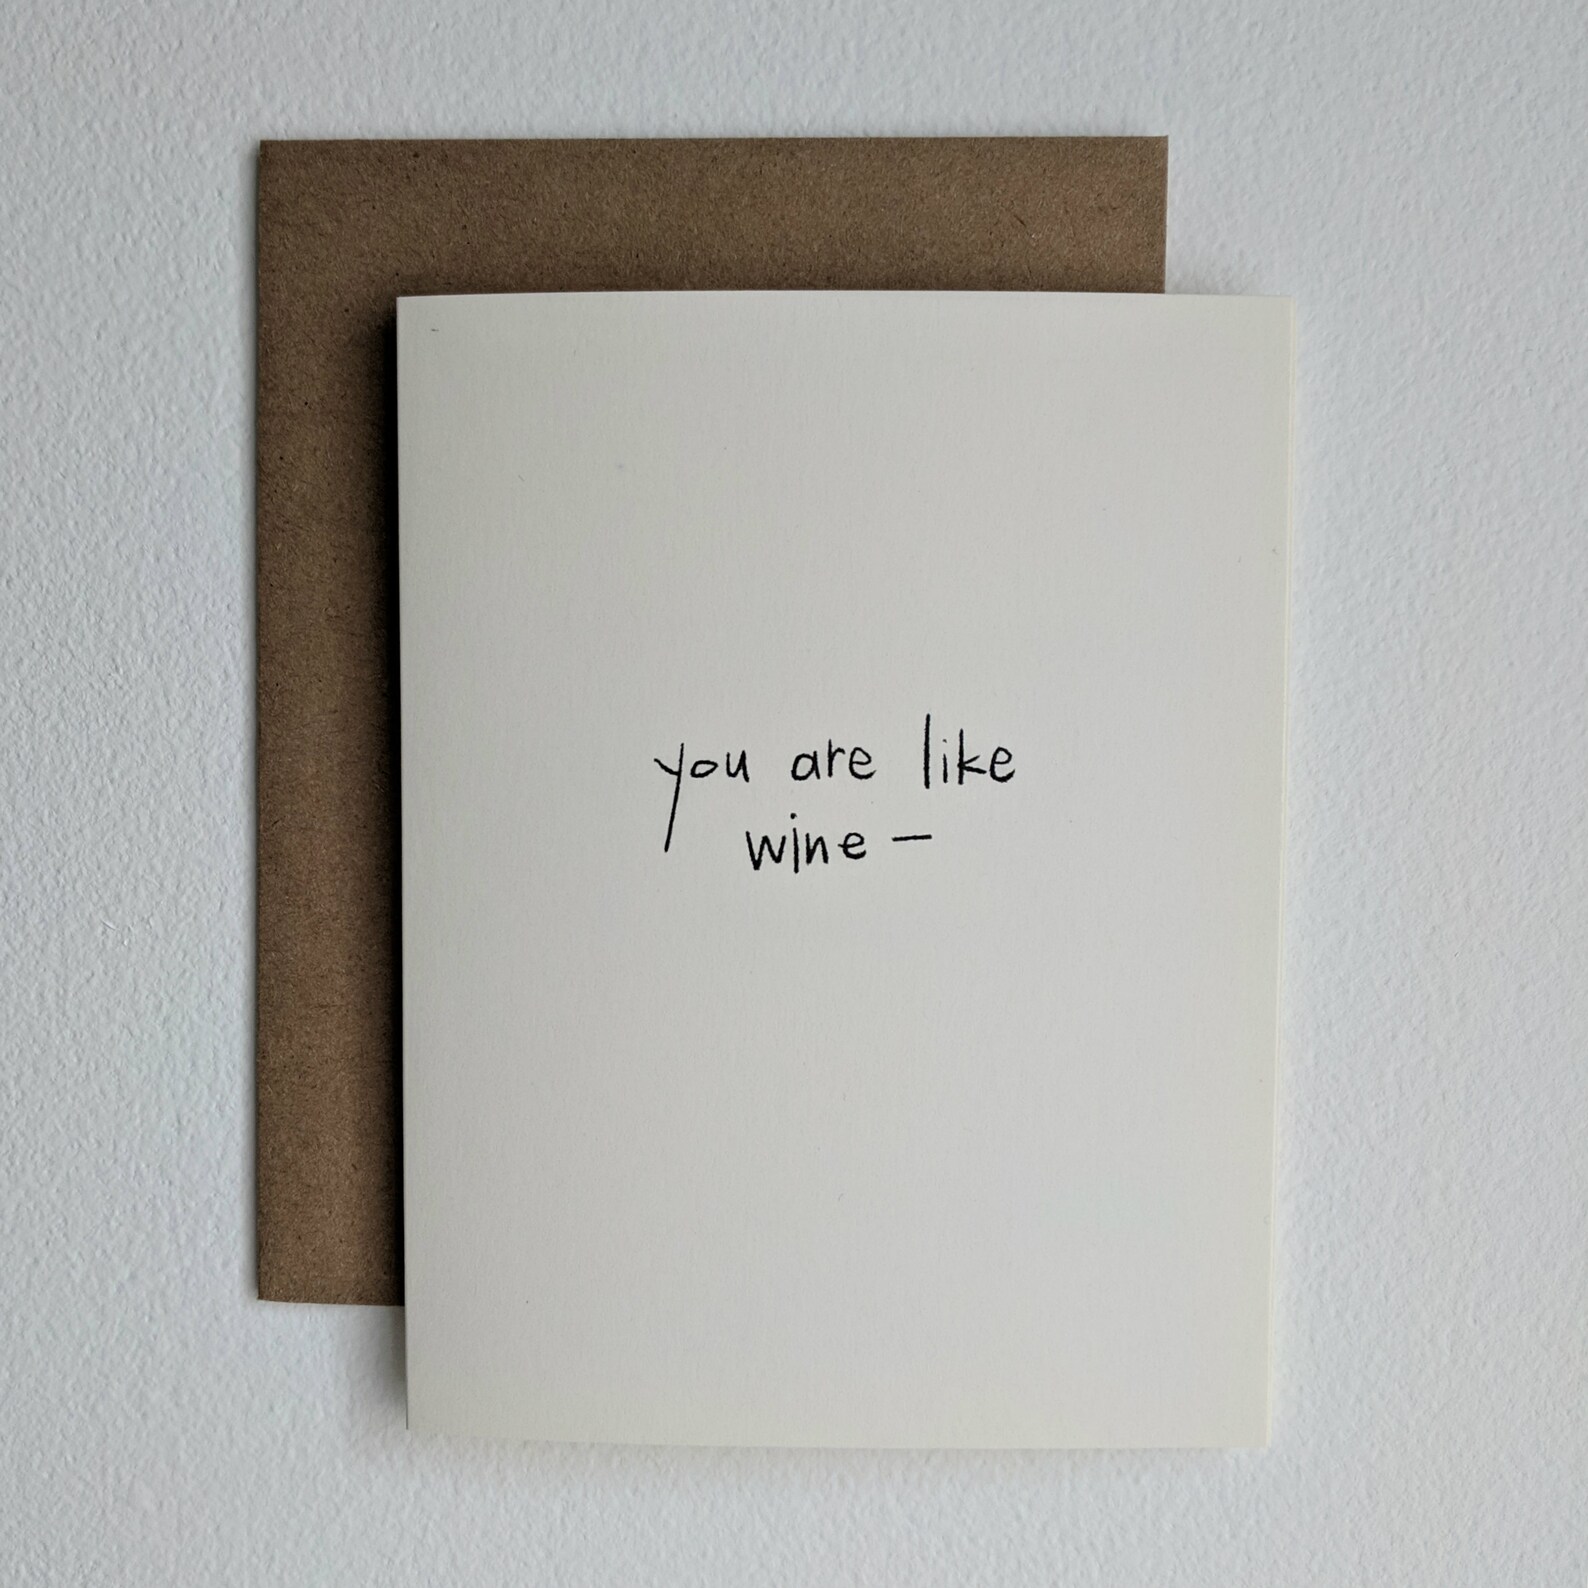 you are like
wine —